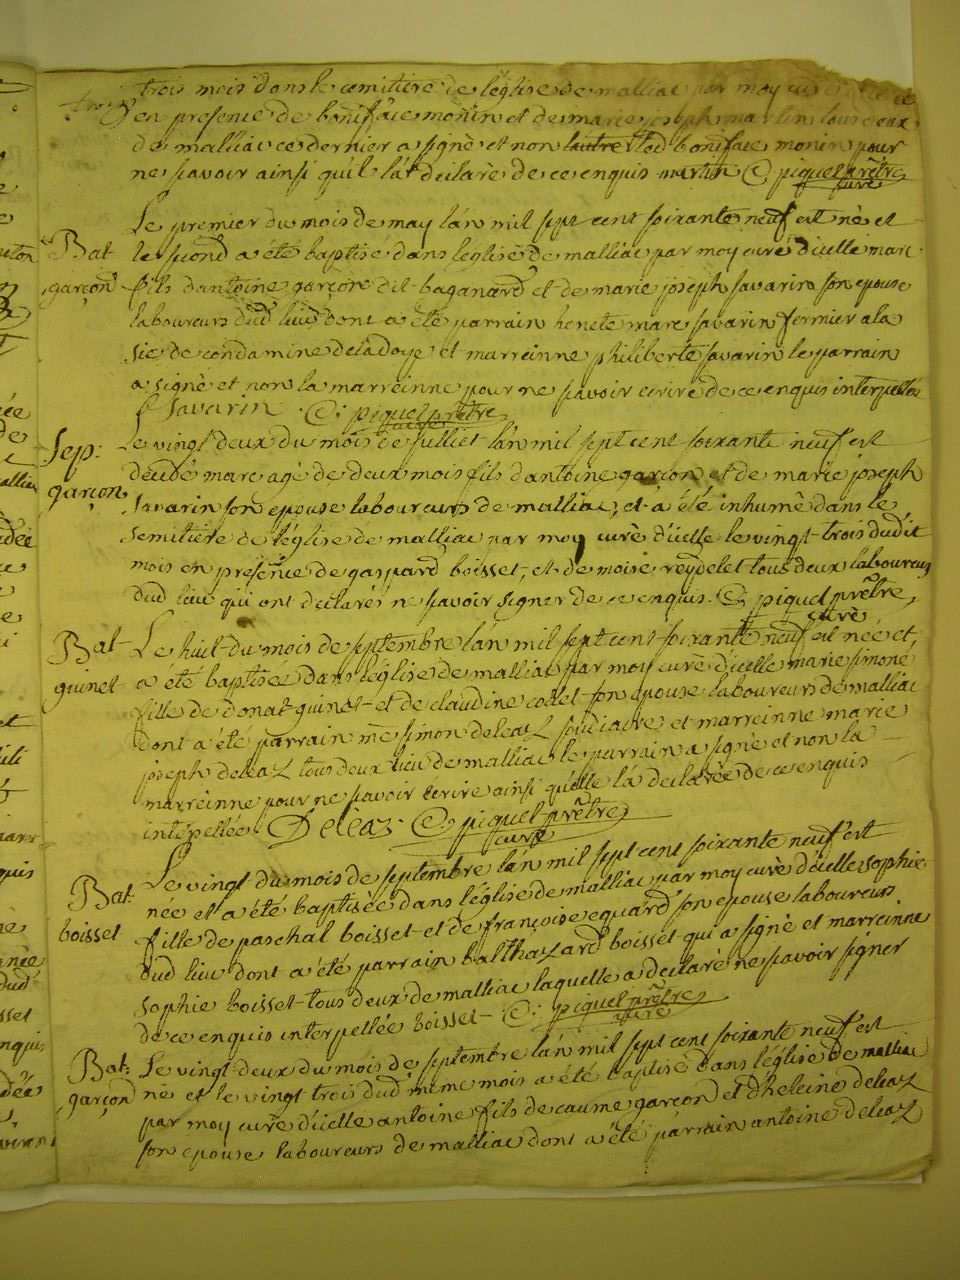 trois mois dans le cemitiere de leglise de malliac par moy
en presence de boniface monin et de marie joseph martin tous deux
de malliac ce dernier a signè et non lautre led boniface monin pour
ne scavoir ainsi quil la declarè de ce enquis martin C: piquet prêtre
curè
Le premier du mois de may lan mil sept cent soixante neuf est nè et
Bat le second a été baptisé dans leglise de malliac par moy curè dicelle marc
garçon fils dantoine garçon dit baganard et de marie joseph savarin son epouse
laboureurs dud lieu dont a été parrain honete marc savarin fermier a la
sie de condamine deladoye et marreinne philiberte savarin le parrain
a signè et non la marreinne pour ne scavoir ecrire de ce enquis interpellée
Savarin C: piquet prêtre
Sep: Le vingt deux du mois de julliet lan mil sept cent soixante neuf est
garçon decédé marc agè de deux mois fils dantoine garçon et de marie joseph
savarin son epouse laboureurs de malliac, et a été inhumè dans le
semitiere de léglise de malliac par moy curè dicelle le vingt trois dudit
mois en presence de gaspard boisset, et de moise reydelet tous deux laboureurs
dud lieu qui ont declarés ne scavoir signer de ce enquis. C: piquet prêtre
curè
Bat Le huit du mois de septembre lan mil sept cent soixante neuf est née et
guinet a été baptisée dans léglise de malliac par moy curè dicelle marie simone
fille de donat guinet et de claudine collet son epouse laboureurs de malliac
dont a été parrain me simon deleaz soudiacre et marreinne marie
joseph deleaz tous deux dud lieu de malliac le parrain a signè et non la
marreinne pour ne scavoir écrire ainsi quelle la declarée de ce enquis
intépellée Deleaz. C: piquet prêtre
curè
Bat Le vingt du mois de septembre lan mil sept cent soixante neuf est
boisset née et a été baptisée dans léglise de malliac par moy curè dicelle sophie
fille de paschal boisset et de françoise eguard son epouse laboureurs
dud lieu dont a été parrain balthazard boisset qui a signè et marreinne
sophie boisset tous deux de malliac laquelle a declarè ne scavoir signer
de ce enquis interpellée boisset C: piquet prêtre
curè
Bat: Le vingt deux du mois de septembre lan mil sept cent soixante neuf est
garçon né et le vingt trois dud même mois a été baptisé dans léglise de malliac
par moy curè dicelle antoine fils de caume garçon et dheleine deleaz
son epouse laboureurs de malliac dont a été parrain antoine deleaz